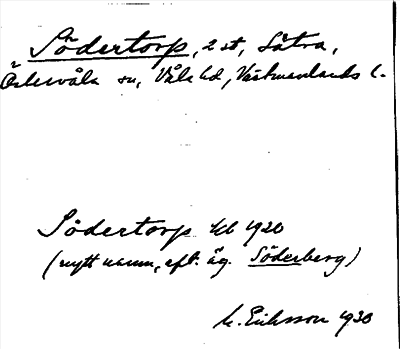 Södertorp, 2 st, Sätra,
Östervåla sn, Våla hd, Västmanlands l.
Södertorp kb 1920
(nytt namn, eft. äg. Söderberg)
M. Eriksson 1930